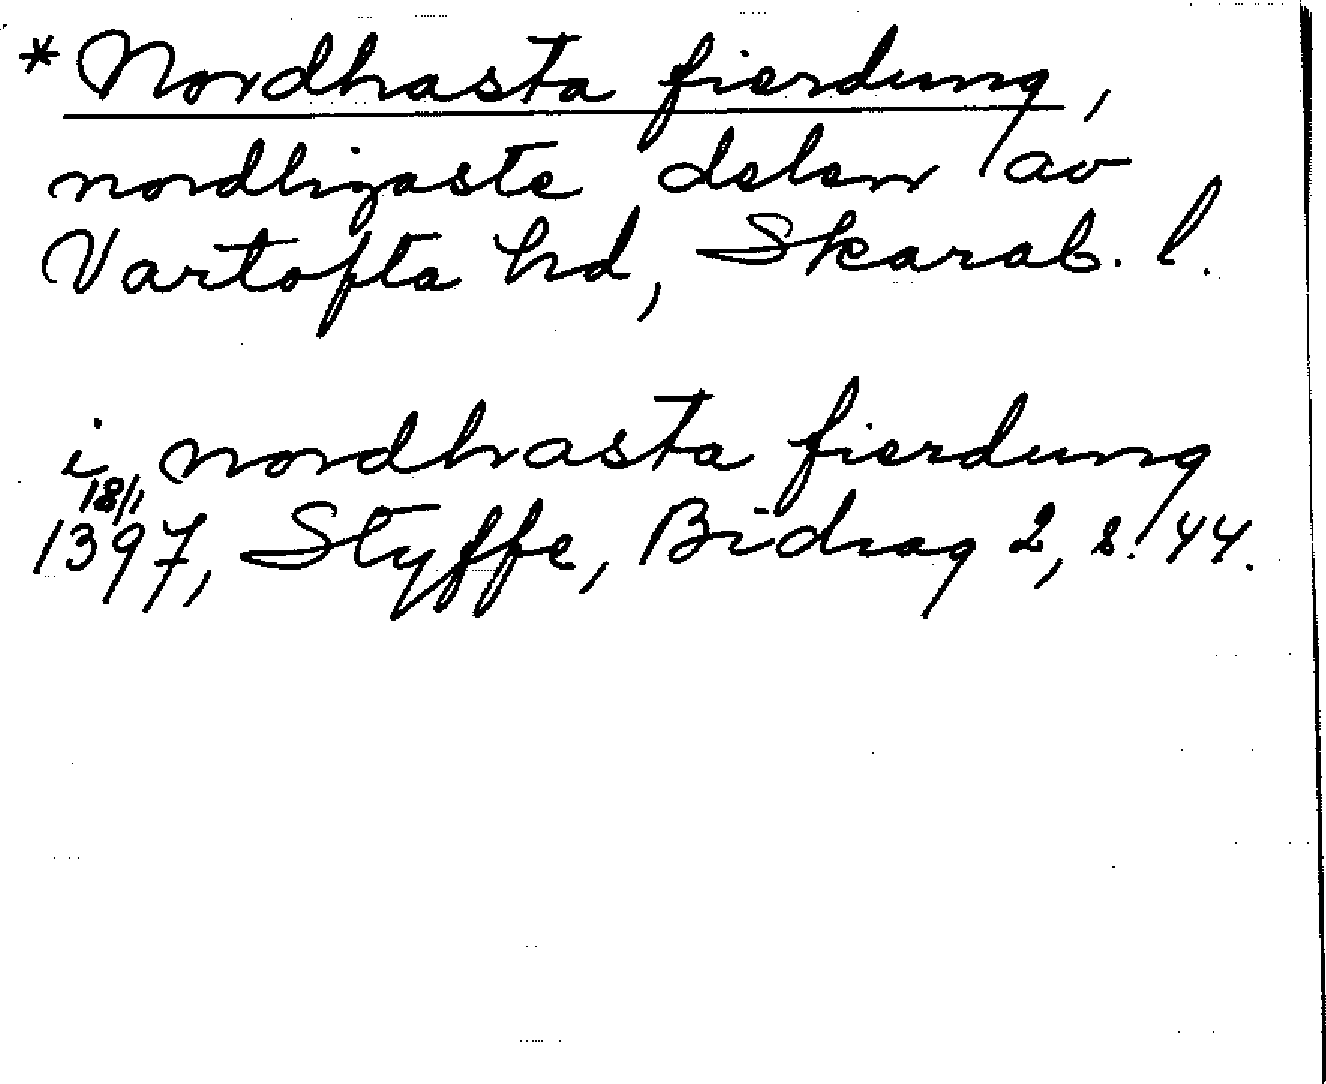 *Nordhasta fierdung,
nordligaste delen av
Vartofta hd, Skarab. l.
i nordhasta fierdung
18/1
1397, Styffe, Bidrag 2, s. 44.